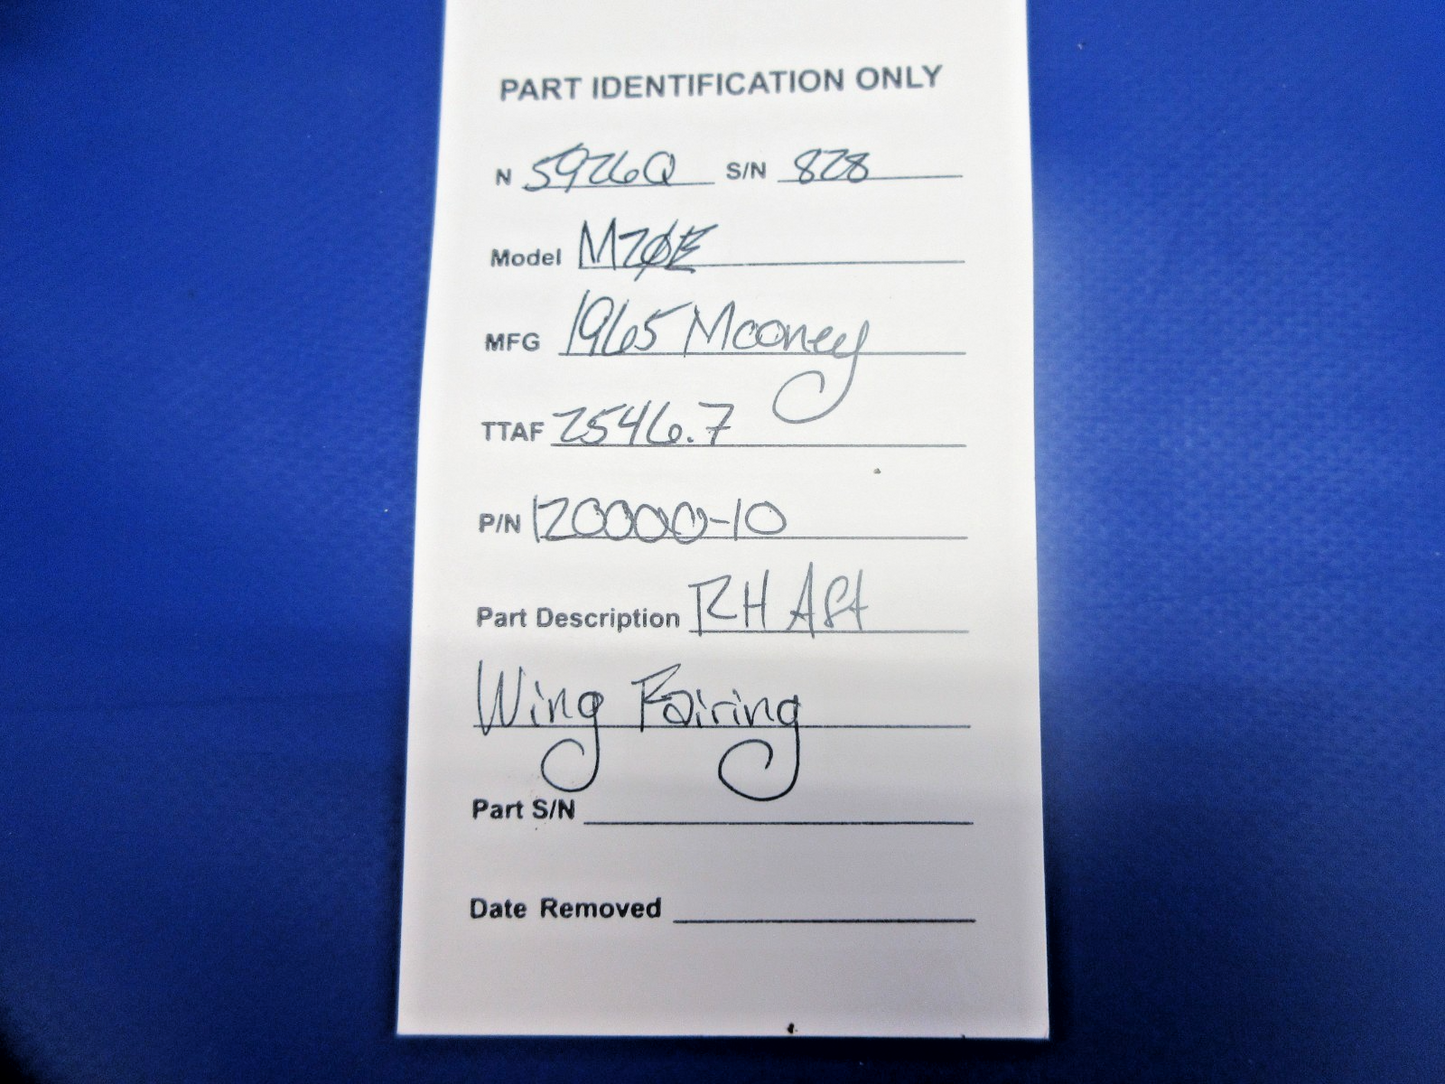 PART IDENTIFICATION ONLY
N 5926Q S/N 828
Model M20E
MFG 1965 Mooney
TTAF 2546.7
P/N 120000-10
Part Description RH Aft
Wing Fairing
Part S/N
Date Removed